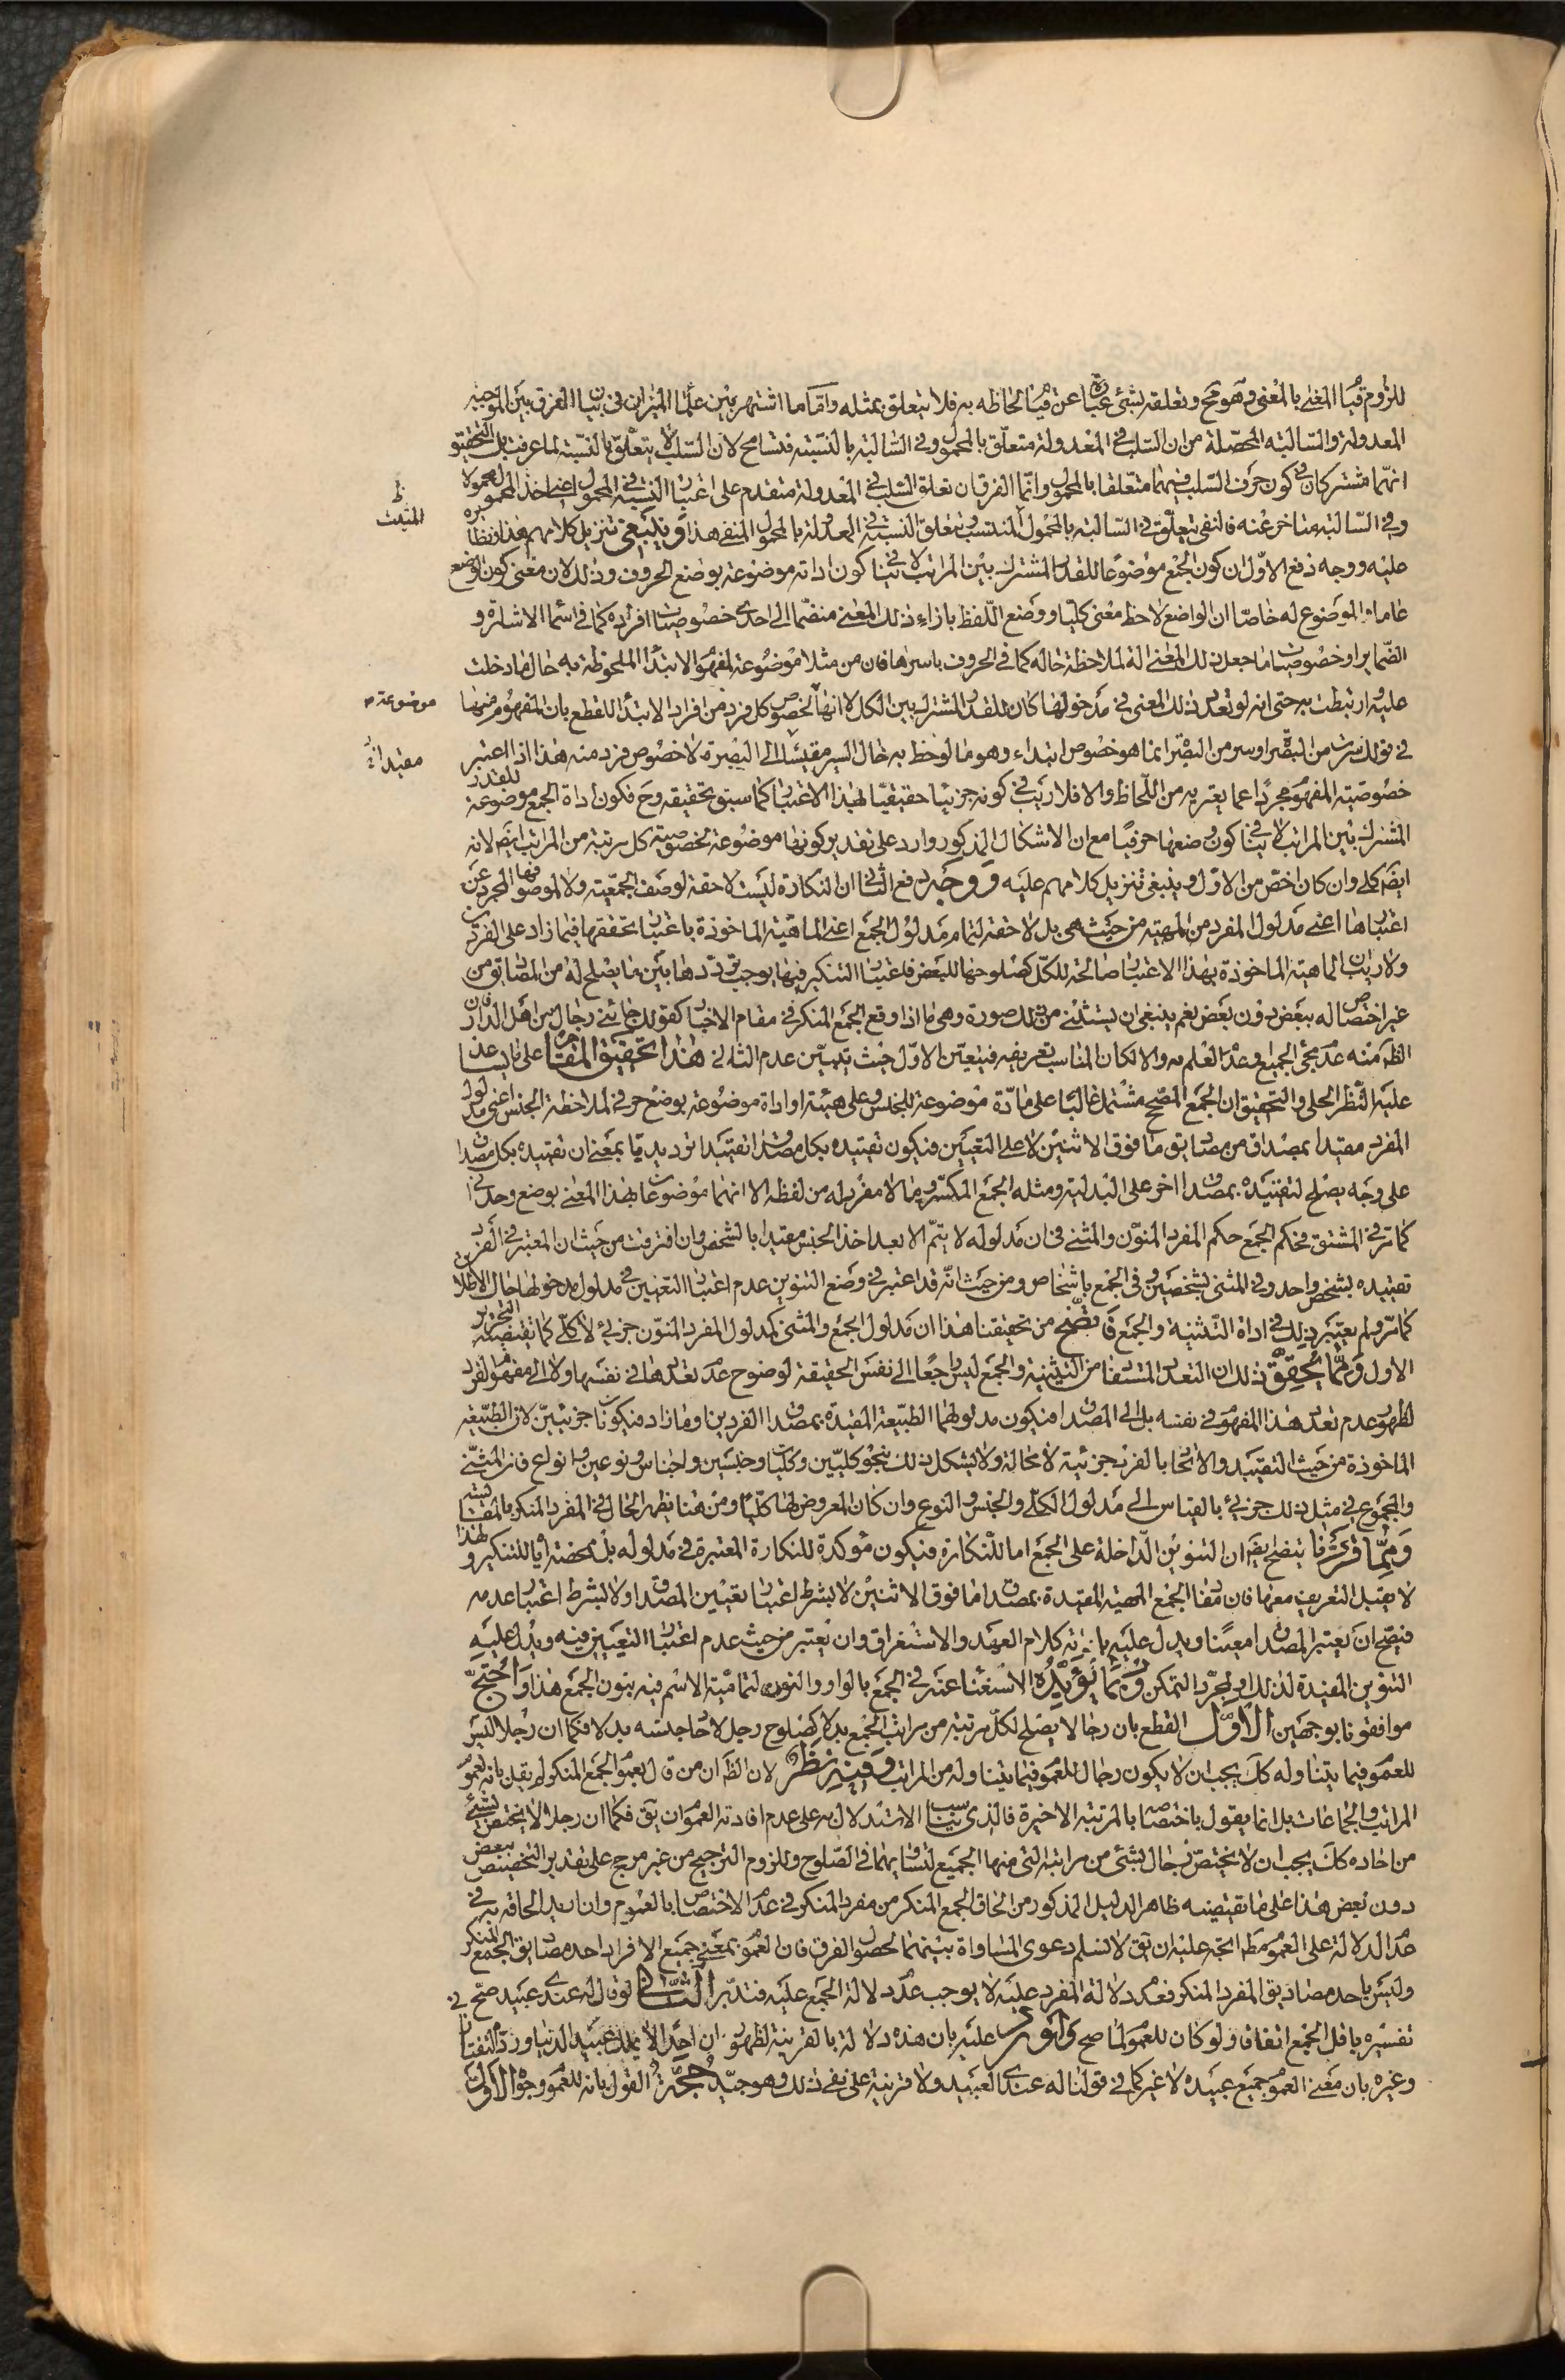 للزوم قيام المعنى بالمعنى وهو مح وتعلقه بشئ عبارة عن قيام لحاظه به فلا يتعلق بمثله واما ما اشتهر بين علماء الميزان فى بيان الفرق بين الموجبة
المعدولة والسالبة المحصلة من ان السلب في المعدولة متعلق بالمحمول وفي السالبة بالنسبة فتسامح لان السلب لا يتعلق بالنسبة لما عرفت بل التحقيق
انهما مشتركان في كون حرف السلب فيهما متعلقا بالمحمول وانما الفرق ان تعلق السلب في المعدولة متقدم على اعتبار النسبة في المحمول اعنى اخذ المحمول محمولا
وفي السالبة متاخر عنه فالنفى تعلق في السالبة بالمحمول المنتسب وتعلق النسبة في المعدولة بالمحمول المنفى هذا وينبغى تنزيل كلامهم هذا ونظائره
عليه ووجه دفع الاول ان كون الجمع موضوعا للقدر المشترك بين المراتب لا ينافي كون اداته موضوعة بوضع الحروف وذلك لان معنى كون الوضع
عاما والموضوع له خاصا ان الواضع لاحظ معنى كليا ووضع اللفظ بازاء ذلك المعنى منضما الى احدى خصوصيات افراده كما في اسماء الاشارة و
الضماير او خصوصيات ما جعل ذلك المعنى الة لملاحظة حاله كما في الحروف باسرها فان من مثلا موضوعة لمفهوم الابتداء الملحوظة به حال ما دخلت
عليه ارتبطت به حتى انه لو تعدد ذلك المعنى في مدخولها كان للقدر المشترك بين الكل لا انها لخصوص كل فرد من افراد الابتداء للقطع بان المفهوم منها
في قولك سرت من البصرة او سر من البصرة انما هو خصوص ابتداء وهو ما لوحظ به حال السير مقيسا الى البصرة لا خصوص فرد منه هذا اذا اعتبر
خصوصية المفهوم مجردا عما يعتريه من اللحاظ والا فلا ريب في كونه جزئيا حقيقيا لهذا الاعتبار كما سبق تحقيقه وح فكون اداة الجمع موضوعة للقدر
المشترك بين المراتب لا ينافي كون وضعها حرفيا مع ان الاشكال المذكور وارد على تقدير كونها موضوعة لخصوصية كل مرتبة من المراتب ايض لانه
ايض كلى وان كان اخص من الاول وينبغى تنزيل كلامهم عليه ووجه دفع الثانى ان النكارة ليست لاحقة لوصف الجمعية ولا لموصوفها المجرد عن
اعتبارها اعنى مدلول المفرد من المهية من حيث هى بل لاحقة لتمام مدلول الجمع اعنى الماهية الماخوذة باعتبار تحققها فيما زاد على الفردين
ولا ريب ان الماهية الماخوذة بهذا الاعتبار صالحة للكل كصلوحها للبعض فاعتبار التنكير فيها يوجب ترددها بين ما يصلح له من المصاديق من
غير اختصاص له ببعض دون بعض نعم ينبغى ان يستثنى من ذلك صورة وهى ما اذا وقع الجمع المنكر في مقام الاخبار كقولك جائنى رجال من اهل الدار فان
الظ منه عدم مجئ الجميع او عدم العلم به والا لكان المناسب تعريفه فيتعين الاول حيث يتبين عدم الثانى هذا تحقيق المقام على ما يساعد
عليه النظر الجلى والتحقيق ان الجمع المصحح مشتمل غالبا على مادة موضوعة للجنس وعلى هيئة او اداة موضوعة بوضع حرفي لملاحظة الجنس اعنى مدلول
المفرد مقيدا بمصداق من مصاديق ما فوق الاثنين لا على التعيين فيكون تقييده بكل مصداق تقييدا ترديديا بمعنى ان تقييده بكل مصداق
على وجه يصلح لتقييده بمصداق اخر على البدلية ومثله الجمع المكسر وما لا مفرد له من لفظه الا انهما موضوعان لهذا المعنى بوضع وحدانى
كما مر في المشتق فحكم الجمع حكم المفرد المنون والمثنى في ان مدلوله لا يتم الا بعد اخذ الجنس مقيدا بالشخص وان افترقت من حيث ان المعتبر في المفرد
تقييده بشخص واحد وفي المثنى بشخصين وفي الجمع باشخاص ومن حيث انه قد اعتبر في وضع التنوين عدم اعتبار التعيين في مدلول مدخولها حال الاطلاق
كما مر ولم يعتبر ذلك في اداة التثنية والجمع فاتضح من تحقيقنا هذا ان مدلول الجمع والمثنى كمدلول المفرد المنون جزئى لا كلى كما يقتضيه التحرير
الاول ومما يحقق ذلك ان التعدد المستفاد من التثنية والجمع ليس راجعا الى نفس الحقيقة لوضوح عدم تعددها في نفسها ولا الى مفهوم الفرد
لظهور عدم تعدد هذا المفهوم في نفسه بل الى المصداق فيكون مدلولهما الطبيعة المقيدة بمصداق الفردين او ما زاد فيكونان جزئيين لان الطبيعة
الماخوذة من حيث التقييد والاتحاد بالفرد جزئية لا محالة ولا يشكل ذلك بنحو كليين وكليات وجنسين واجناس ونوعين وانواع فان المثنى
والمجموع في مثل ذلك جزئى بالقياس الى مدلول الكلى والجنس والنوع وان كان المعروض لها كليا ومن هنا يظهر الحال في المفرد المنكر بالمقايسة
ومما قررنا يتضح ايض ان التنوين الداخلة على الجمع اما للنكارة فيكون مؤكدة للنكارة المعتبرة في مدلوله بل ممحضة اياه للتنكير ولهذا
لا يقبل التعريف معها فان مفاد الجمع المهية المقيدة بمصداق ما فوق الاثنين لا بشرط اعتبار تعيين المصداق ولا بشرط اعتبار عدمه
فيصح ان يعتبر المصداق معينا ويدل عليه باداته كلام العهد والاستغراق وان يعتبر من حيث عدم اعتبار التعيين فيه ويدل عليه
التنوين المفيدة لذلك او لمجرد التمكن ومما يؤيده الاستغناء عنه في الجمع بالواو والنون لتمامية الاسم فيه بنون الجمع هذا واحتج
موافقونا بوجهين الاول القطع بان رجالا يصلح لكل مرتبة من مراتب الجمع بدلا كصلوح رجل لاحاد جنسه بدلا فكما ان رجلا ليس
للعموم فيما يتناوله كك يجب ان لا يكون رجال للعموم فيما يتناوله من المراتب وفيه نظر لان الظ ان من قال بعموم الجمع المنكر لم يقل بانه لعموم
المراتب والجماعات بل انما يقول باختصاصه بالمرتبة الاخيرة فالذى يناسب الاستدلال به على عدم افادته العموم ان يق فكما ان رجلا لا يختص بشئ
من احاده كك يجب ان لا يختص رجال بشئ من مراتبه التى منها الجميع لتساويهما في الصلوح وللزوم الترجيح من غير مرجح على تقدير التخصيص ببعض
دون بعض هذا على ما يقتضيه ظاهر الدليل المذكور من الحاق الجمع المنكر من مفرد المنكر في عدم الاختصاص بالعموم وان اريد الحاقه به في
عدم الدلالة على العموم مط اتجه عليه ان يق لا نسلم دعوى المساواة بينهما لحصول الفرق فان العموم بمعنى جميع الافراد احد مصاديق الجمع المنكر
وليس باحد مصاديق المفرد المنكر فعدم دلالة المفرد عليه لا يوجب عدم دلالة الجمع عليه فتدبر الثانى لو قال له عندى عبيد صح في
تفسيره باقل الجمع اتفاقا ولو كان للعموم لما صح واورد عليه بان هذه دلالة بالقرينة لظهور ان احدا لا يملك عبيد الدنيا ورده التفتازانى
وغيره بان معنى العموم جميع عبيده لا غير كما في قولنا له عندى العبيد ولا قرينة على نفى ذلك وهو جيد حجة القول بانه للعموم وجوه الاول
ظ
المثبت
موضوعة م
مقيدا